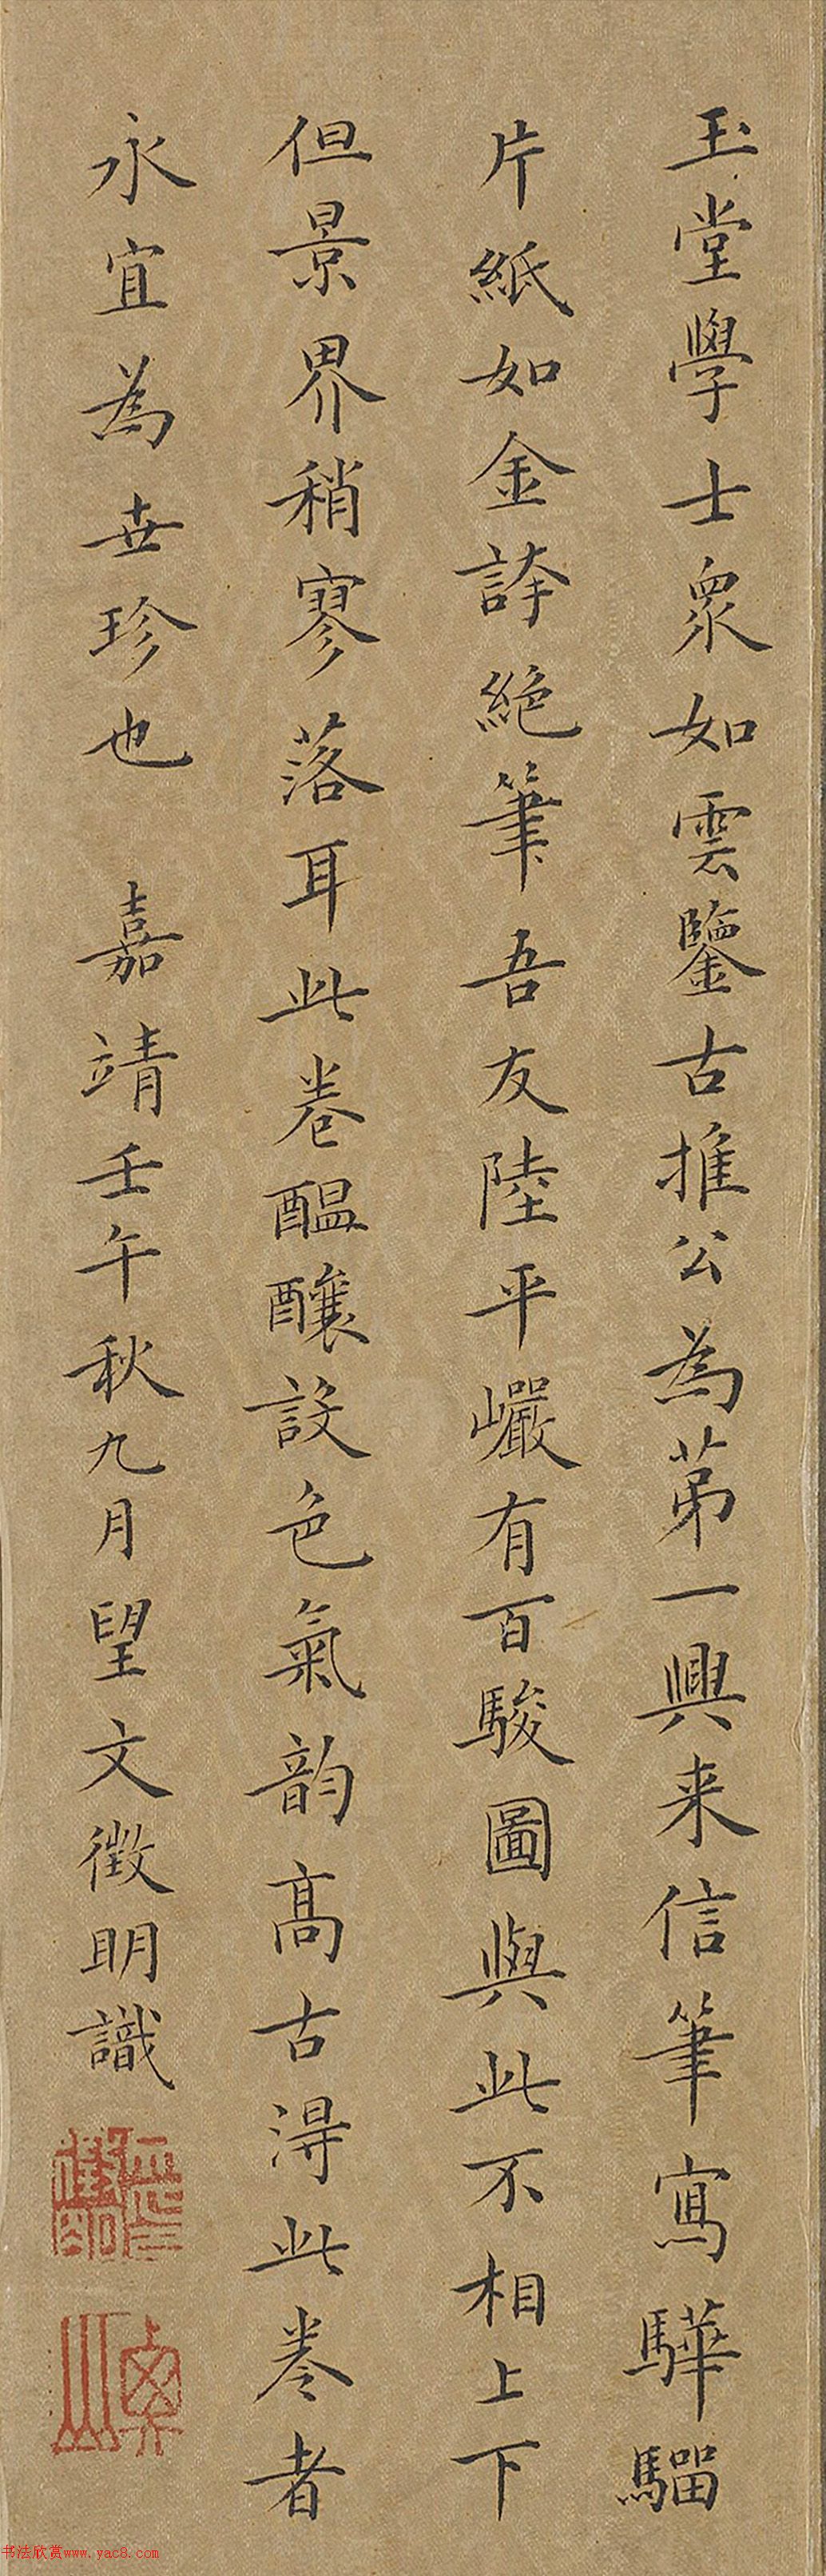 玉堂學士衆如雲鑒古推公為苐一興来信筆寫驊騮
片紙如金誇絕筆吾友陸平巗有百駿圖與此不相上下
但景界稍寥落耳此卷醞釀設色氣韵髙古淂此卷者
永宜為世珍也 嘉靖壬午秋九月望文徵明識
书法欣赏www.yac8.com